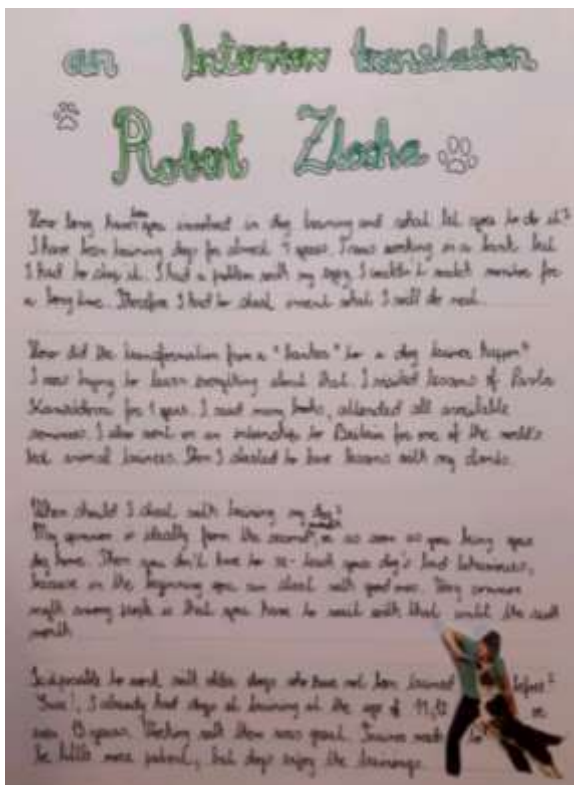 an Interview translation
Robert Zlocha
How long have you been involved in dog training and what led you to do it?
I have been training dogs for almost 9 years. I was working in a bank but
I had to stop it. I had a problem with my eyes, I couldn't watch monitor for
a long time. Therefore I had to start invent what I will do next.
How did the transformation from a "banker" to a dog trainer happen?
I was trying to learn everything about that. I visited lessons of
for 1 year. I read many books, attended all available
seminars. I also went on an internship to Britain for one of the world's
best animal trainers. Then I started to have lessons with my clients.
When should I start with training my dog?
My opinion is ideally from the second as soon as you bring your
dog home. Then you don't have to re-teach your dog's bad behaviours,
because in the beginning you can start with good ones. Very common
myth among people is that you have to wait with that until the sixth
month.
Is it possible to work with older dogs who have not been trained before?
Sure!, I already had dogs at training at the age of 11, 12 or
even 13 years. Working with them was great. Trainer needs to
be little more patient, but dogs enjoy the trainings.